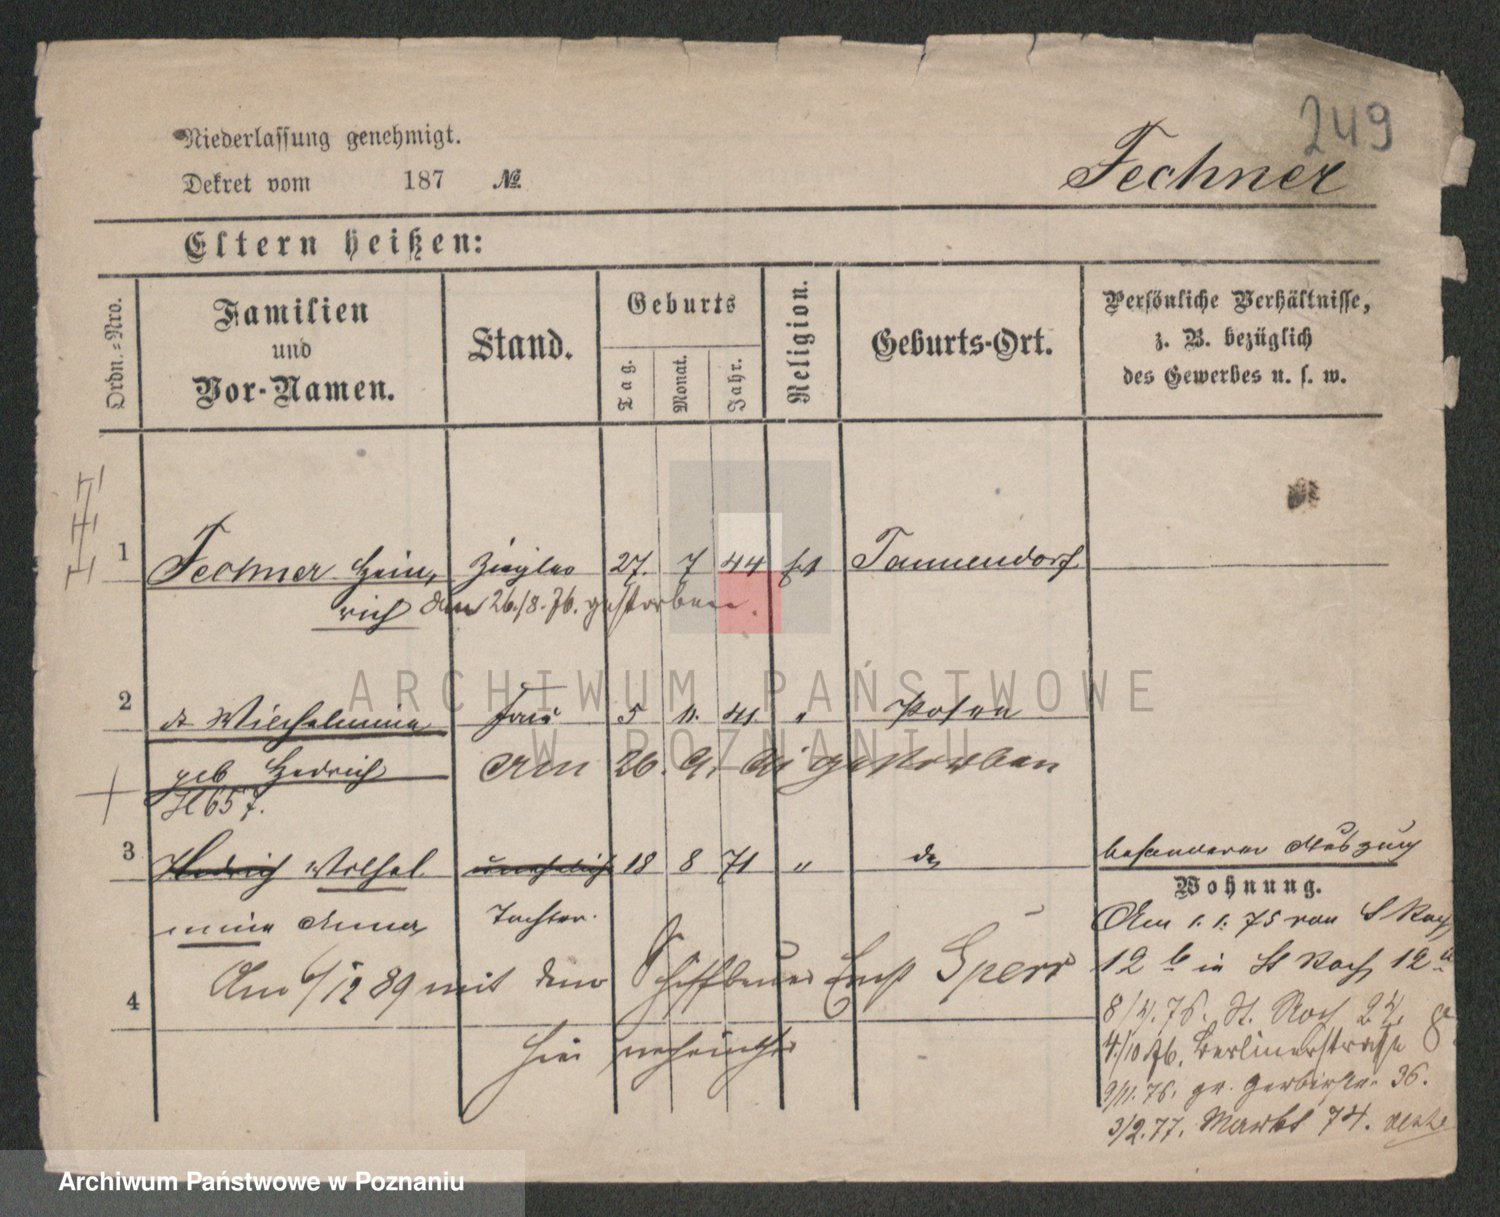 249
Niederlassung genehmigt.
Fechner
Dekret vom 187 №
Eltern heißen:
Ordn.-Nro.
Familien und Vor-Namen.
Stand.
Geburts
Tag.
Monat.
Jahr.
Religion.
Geburts-Ort.
Persönliche Verhältnisse,
z. B. bezüglich
des Gewerbes u. s. w.
1 Fechner Hein- Ziegler 27. 7 44 Tannendorf
rich den 26./8.76. gestorben.
2 Wilhelmine Frau 5 11. 41. " Posen
geb Hedrich Am 26. 9. gestorben
H 657.
3 Hedrich Wilhel unehelich 18 8 71 " do
besonderer Auszug
Wohnung.
mine Anna Tochter.
Am 1. 1. 75 von St Roch
12 b in St Roch 12
Am 6/12 89 mit dem Schiffbauer Ernst Sperr
4
8/4. 76. St. Roch 24.
hier verheirathet
4./10 76. Berlinerstrasse 8
9/11. 76. gr. Gerberstr. 36.
3/2. 77. Markt 74.
ARCHIWUM PAŃSTWOWE
W POZNANIU
Archiwum Państwowe w Poznaniu